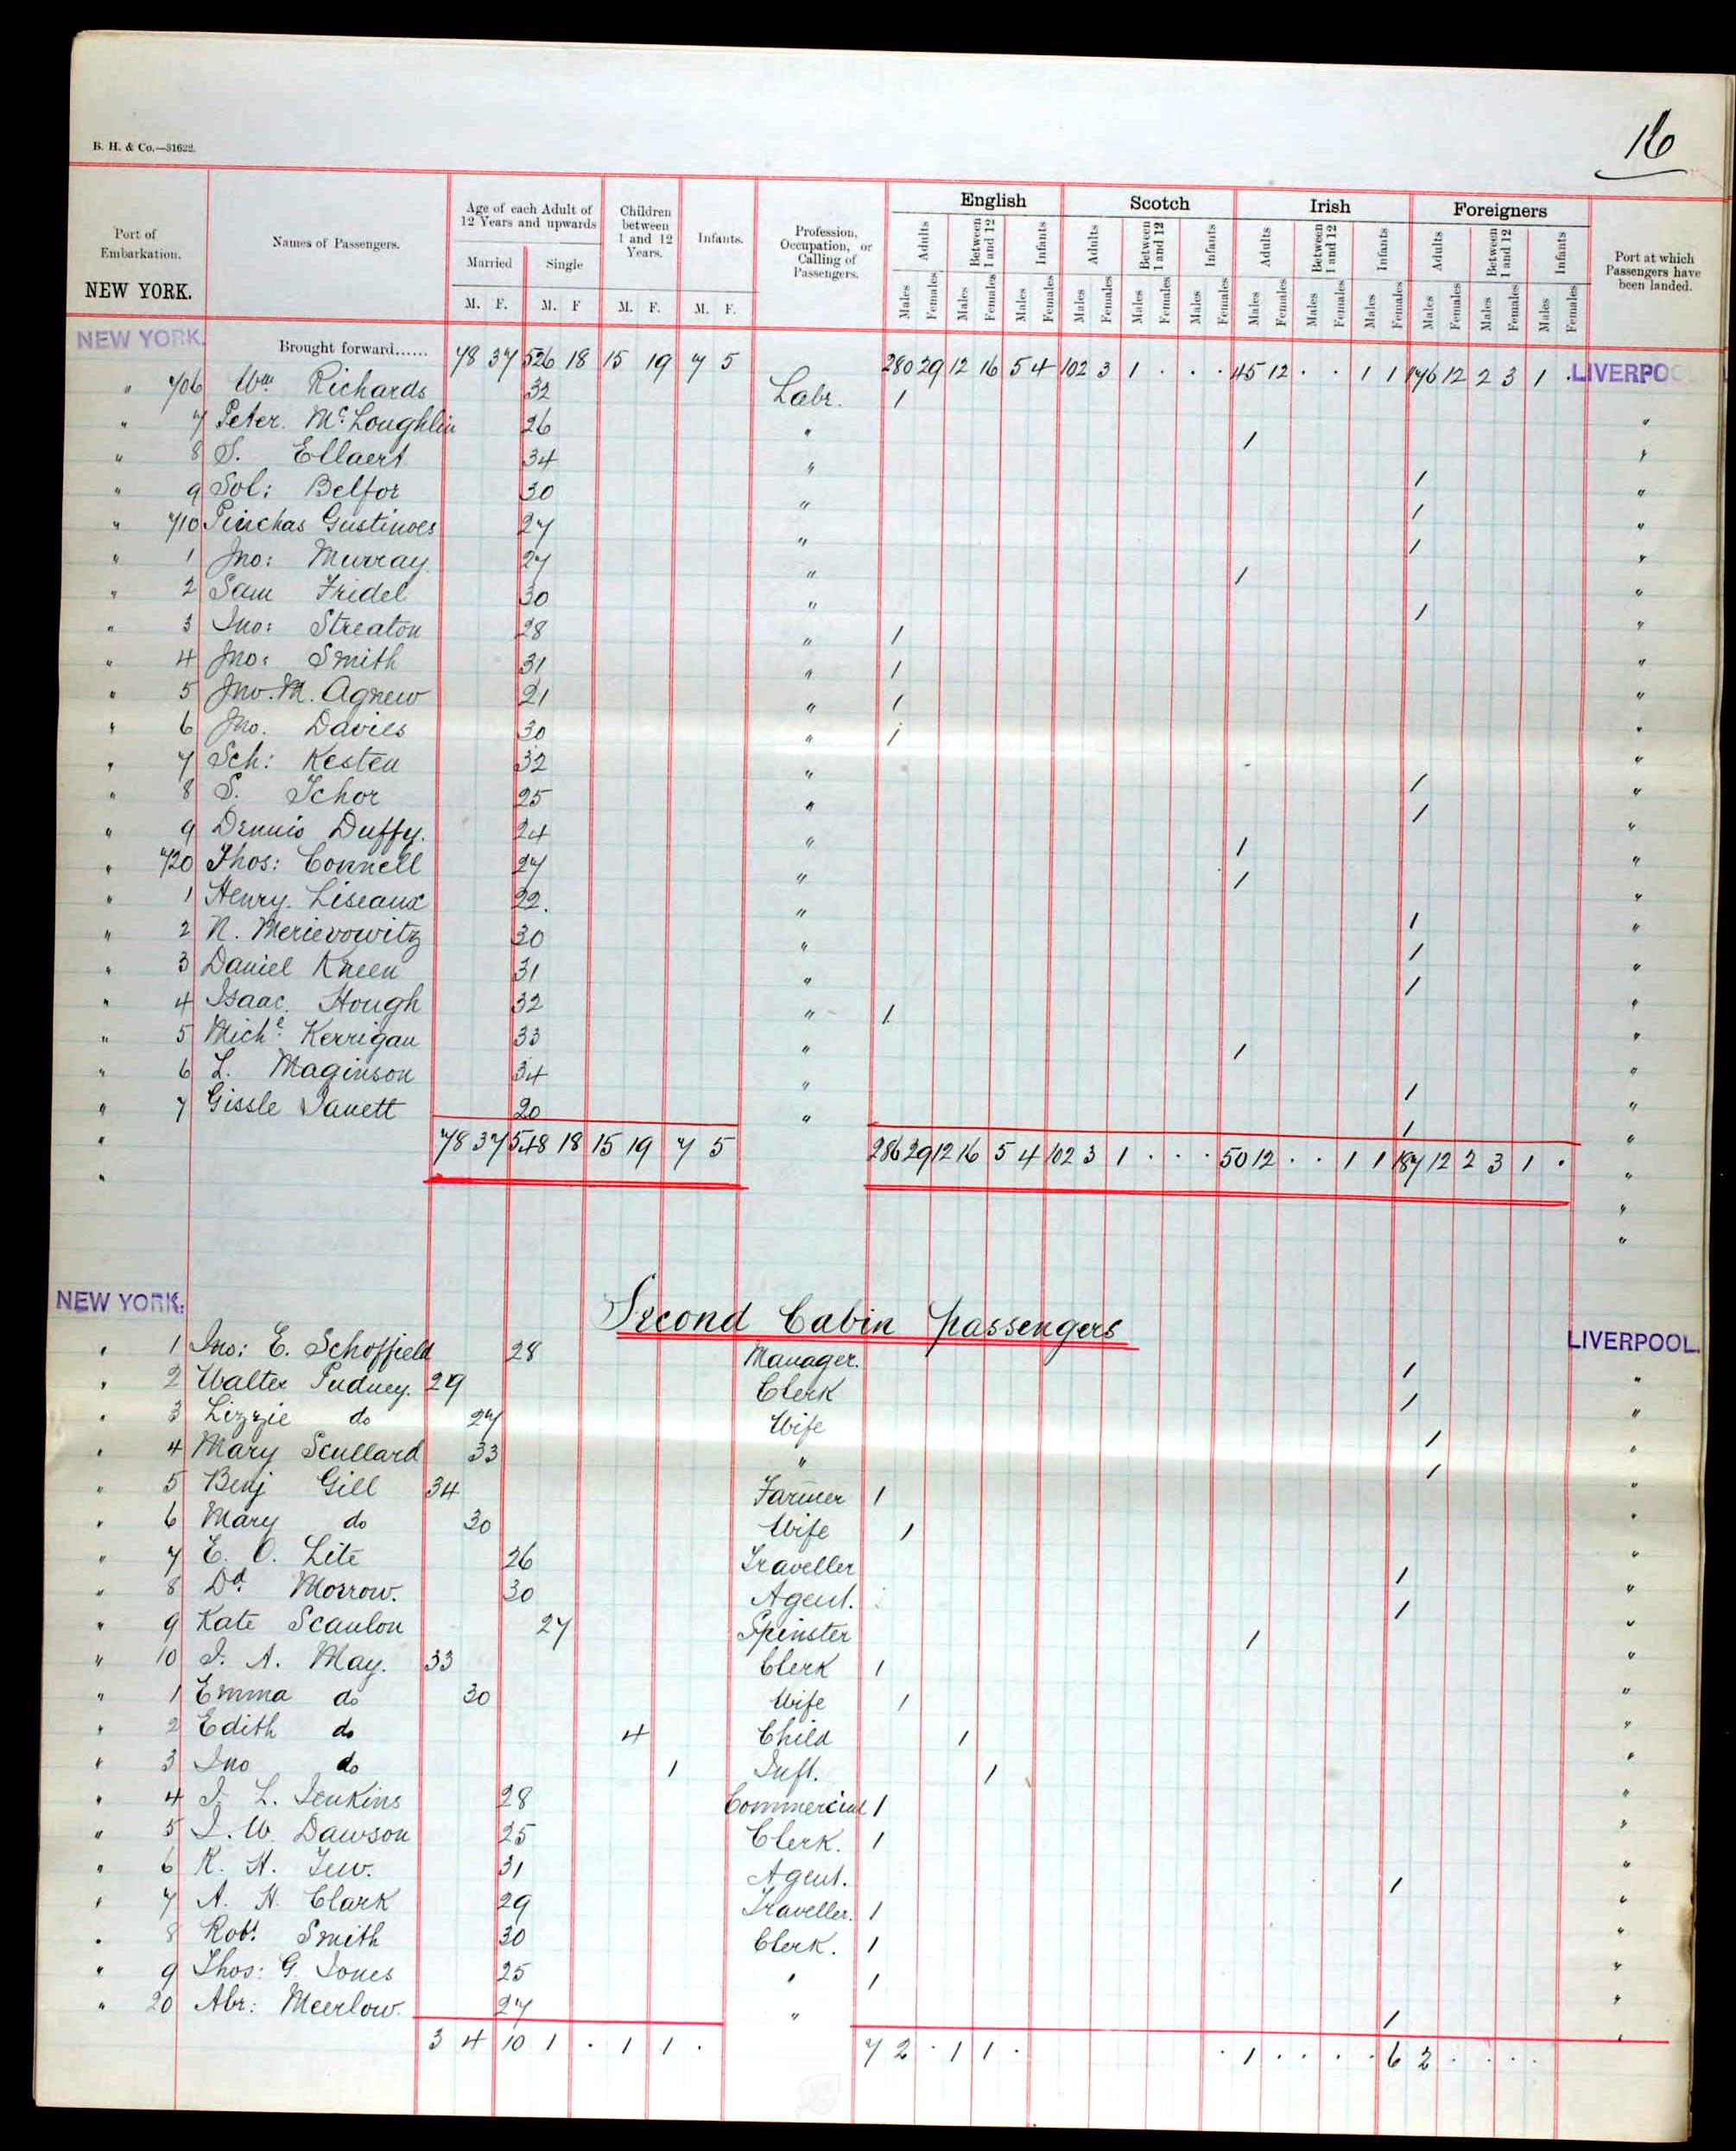 16
B. H. & Co.—31622.
Port of Embarkation. NEW YORK.
Names of Passengers.
Age of each Adult of 12 Years and upwards
Married Single
M. F. M. F
Children between 1 and 12 Years.
M. F.
Infants.
M. F.
Profession, Occupation, or Calling of Passengers.
English Scotch Irish Foreigners
Adults Between 1 and 12 Infants Adults Between 1 and 12 Infants Adults Between 1 and 12 Infants Adults Between 1 and 12 Infants
Males Females Males Females Males Females Males Females Males Females Males Females Males Females Males Females Males Females Males Females Males Females Males Females
Port at which Passengers have been landed.
NEW YORK. Brought forward...... 78 37 526 18 15 19 7 5 280 29 12 16 5 4 102 3 1 . . . 45 12 . . 1 1 176 12 2 3 1 . LIVERPO
" 706 Wm Richards 32 Labr. 1
" 7 Peter. McLoughlin 26 " 1 "
" 8 S. Ellaert 34 " 1 "
" 9 Sol: Belfor 30 " 1 "
" 710 Pinchas Gustinoes 27 " 1 "
" 1 Jno: Murray. 27 " 1 "
" 2 Sam Fridel 30 " 1 "
" 3 Jno: Streaton 28 " 1 "
" 4 Jno: Smith 31 " 1 "
" 5 Jno. M. Agnew 21 " 1 "
" 6 Jno. Davies 30 " 1 "
" 7 Sch: Kesten 32 " 1 "
" 8 S. Schor 25 " 1 "
" 9 Dennis Duffy. 24 " 1 "
" 720 Thos: Connell 27 " 1 "
" 1 Henry. Liseaux 22. " 1 "
" 2 N. Merievowitz 30 " 1 "
" 3 Daniel Kneen 31 " 1 "
" 4 Isaac. Hough 32 " 1 "
" 5 Michl Kerrigan 33 " 1 "
" 6 L. Maginson 34 " 1 "
" 7 Gissle Janett 20 " 1 "
" 78 37 548 18 15 19 7 5 286 29 12 16 5 4 102 3 1 . . . 50 12 . . 1 1 187 12 2 3 1 . "
NEW YORK. Second Cabin passengers LIVERPOOL.
" 1 Jno: E. Schoffield 28 Manager. 1 "
" 2 Walter Pudney. 29 Clerk 1 "
" 3 Lizzie do 27 Wife 1 "
" 4 Mary Scullard 33 " 1 "
" 5 Benj Gill 34 Farmer 1 "
" 6 Mary do 30 Wife 1 "
" 7 E. O. Lite 26 Traveller 1 "
" 8 Dd. Morrow. 30 Agent. 1 "
" 9 Kate Scanlon 27 Spinster 1 "
" 10 J. A. May. 33 Clerk 1 "
" 1 Emma do 30 Wife 1 "
" 2 Edith do 4 Child 1 "
" 3 Jno do 1 Inft. 1 "
" 4 J. L. Jenkins 28 Commercial 1 "
" 5 J. W. Dawson 25 Clerk. 1 "
" 6 R. H. 31 Agent. 1 "
" 7 A. H. Clark 29 Traveller. 1 "
" 8 Robt Smith 30 Clerk. 1 "
" 9 Thos: G. Jones 25 " 1 "
" 20 Abr: Meerlow. 27 " 1 "
3 4 10 1 . 1 1 . 7 2 . 1 1 . . 1 . . . . 6 2 . . . .